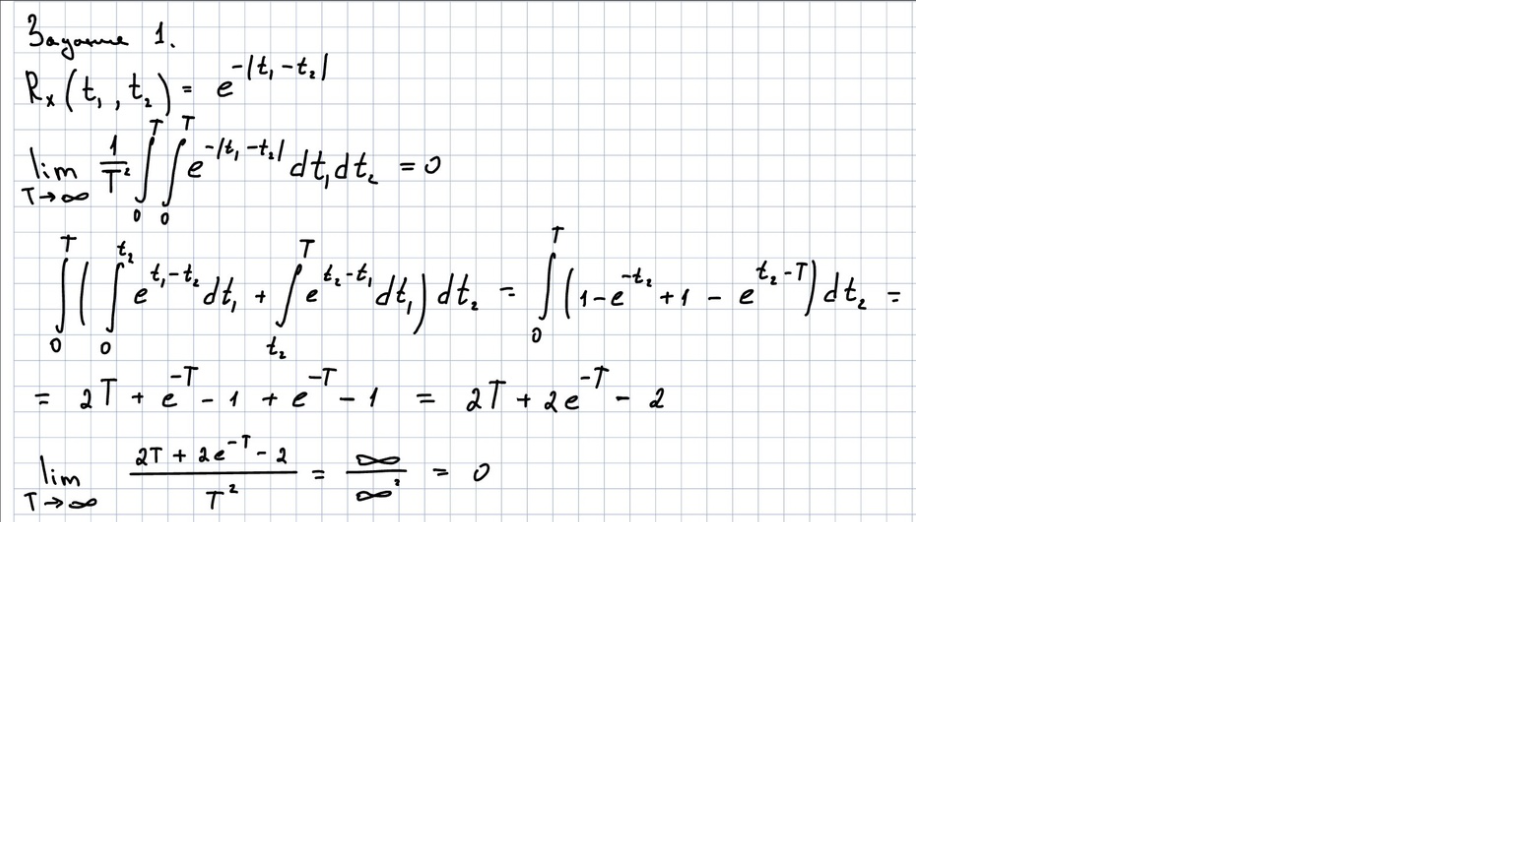 Задание 1.
Rₓ(t₁, t₂) = e^{-|t₁ - t₂|}
lim_{T→∞} 1/T² ∫₀^T ∫₀^T e^{-|t₁ - t₂|} dt₁dt₂ = 0
∫₀^T ( ∫₀^{t₂} e^{t₁ - t₂} dt₁ + ∫_{t₂}^T e^{t₂ - t₁} dt₁ ) dt₂ = ∫₀^T (1 - e^{-t₂} + 1 - e^{t₂ - T}) dt₂ =
= 2T + e^{-T} - 1 + e^{-T} - 1 = 2T + 2e^{-T} - 2
lim_{T→∞} (2T + 2e^{-T} - 2)/T² = ∞/∞² = 0